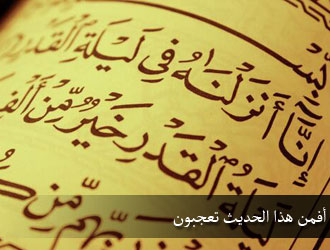 إِنَّا أَنزَلْنَاهُ فِي لَيْلَةِ الْقَدْرِ
لَيْلَةُ الْقَدْرِ خَيْرٌ مِّنْ أَلْفِ
رَبِّهِم مِّن كُ
أفمن هذا الحديث تعجبون